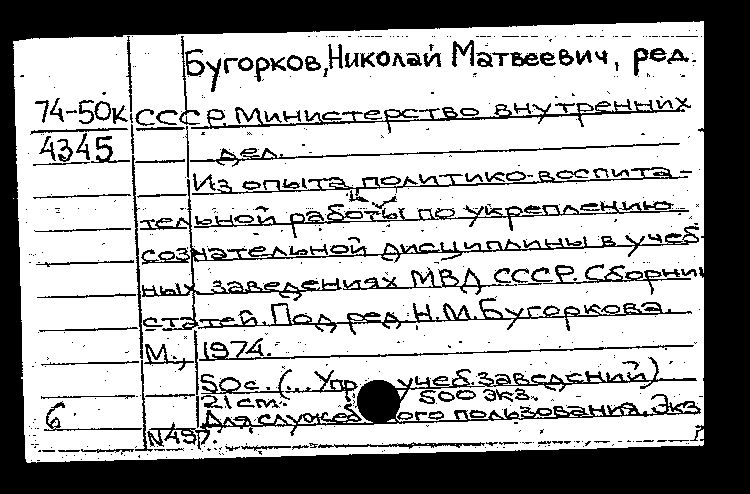 Бугорков, Николай Матвеевич, ред.
74-50к СССР. Министерство внутренних
4345 дел.
Из опыта политико-воспита-
тельной работы по укреплению
сознательной дисциплины в учеб-
ных заведениях МВД СССР. Сборник
статей. Под ред. Н.М. Бугоркова.
М., 1974.
50 с. (... Упр. учеб. заведений)
21 cm. 500 экз.
6 Для служебного пользования. Экз
N497.